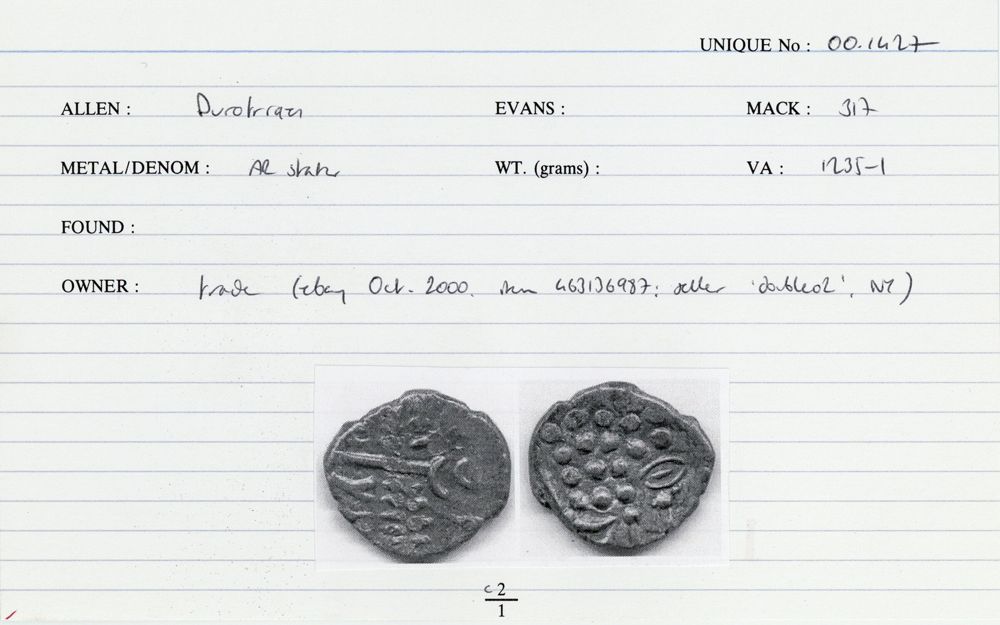 UNIQUE No : 00.1427
ALLEN : Durotrigan EVANS : MACK : 317
METAL/DENOM : AR stater WT. (grams) : VA : 1235-1
FOUND :
OWNER : trade (ebay Oct. 2000. item 463136987; seller 'double02', NY)
c 2
1